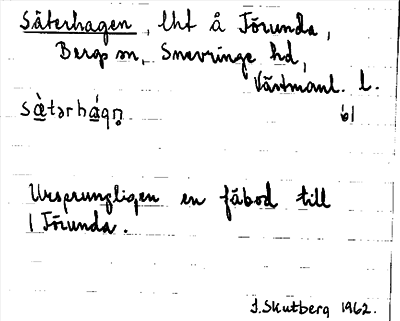 Säterhagen, lht å Törunda,
Bergs sn, Snevringe hd,
Västmanl. l.
sæ̀tərhágn̥
61
Ursprungligen en fäbod till
Törunda.
J. Skutberg 1962.